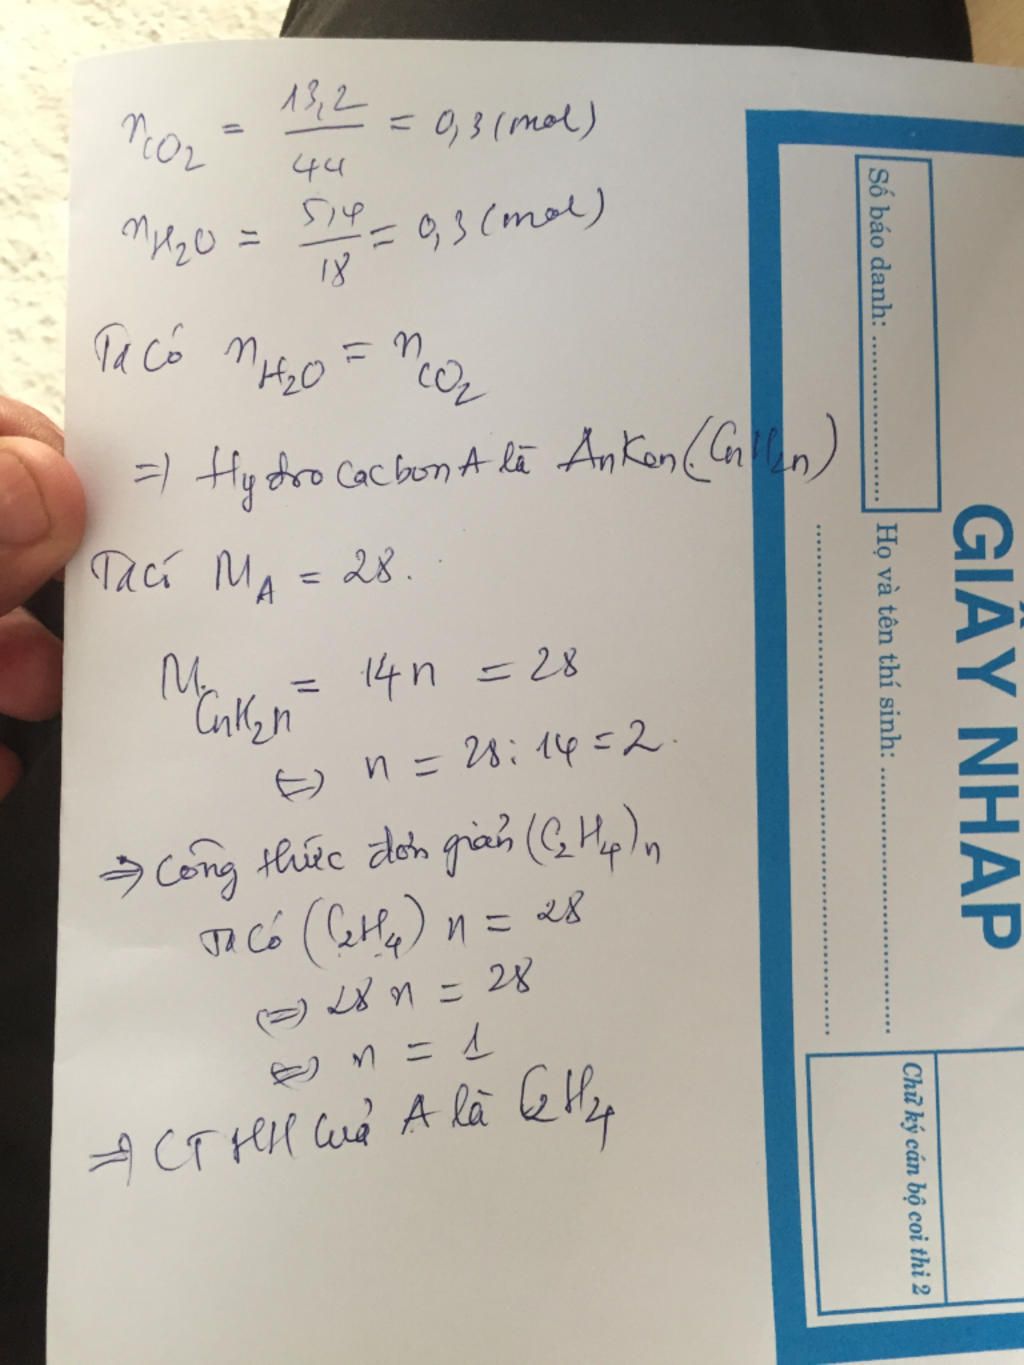 nCO2 = 13,2/44 = 0,3 (mol)
nH2O = 5,4/18 = 0,3 (mol)
Ta có nH2O = nCO2
=) Hydro cacbon A là AnKen (CnH2n)
Ta có MA = 28.
MCnH2n = 14n = 28
(=) n = 28 : 14 = 2.
=> Công thức đơn giản (C2H4)n
Ta có (C2H4) n = 28
(=) 28 n = 28
(=) n = 1
=> CTHH của A là C2H4
Số báo danh: ....................
Họ và tên thí sinh: ....................
GIẤY NHÁP
Chữ ký cán bộ coi thi 2